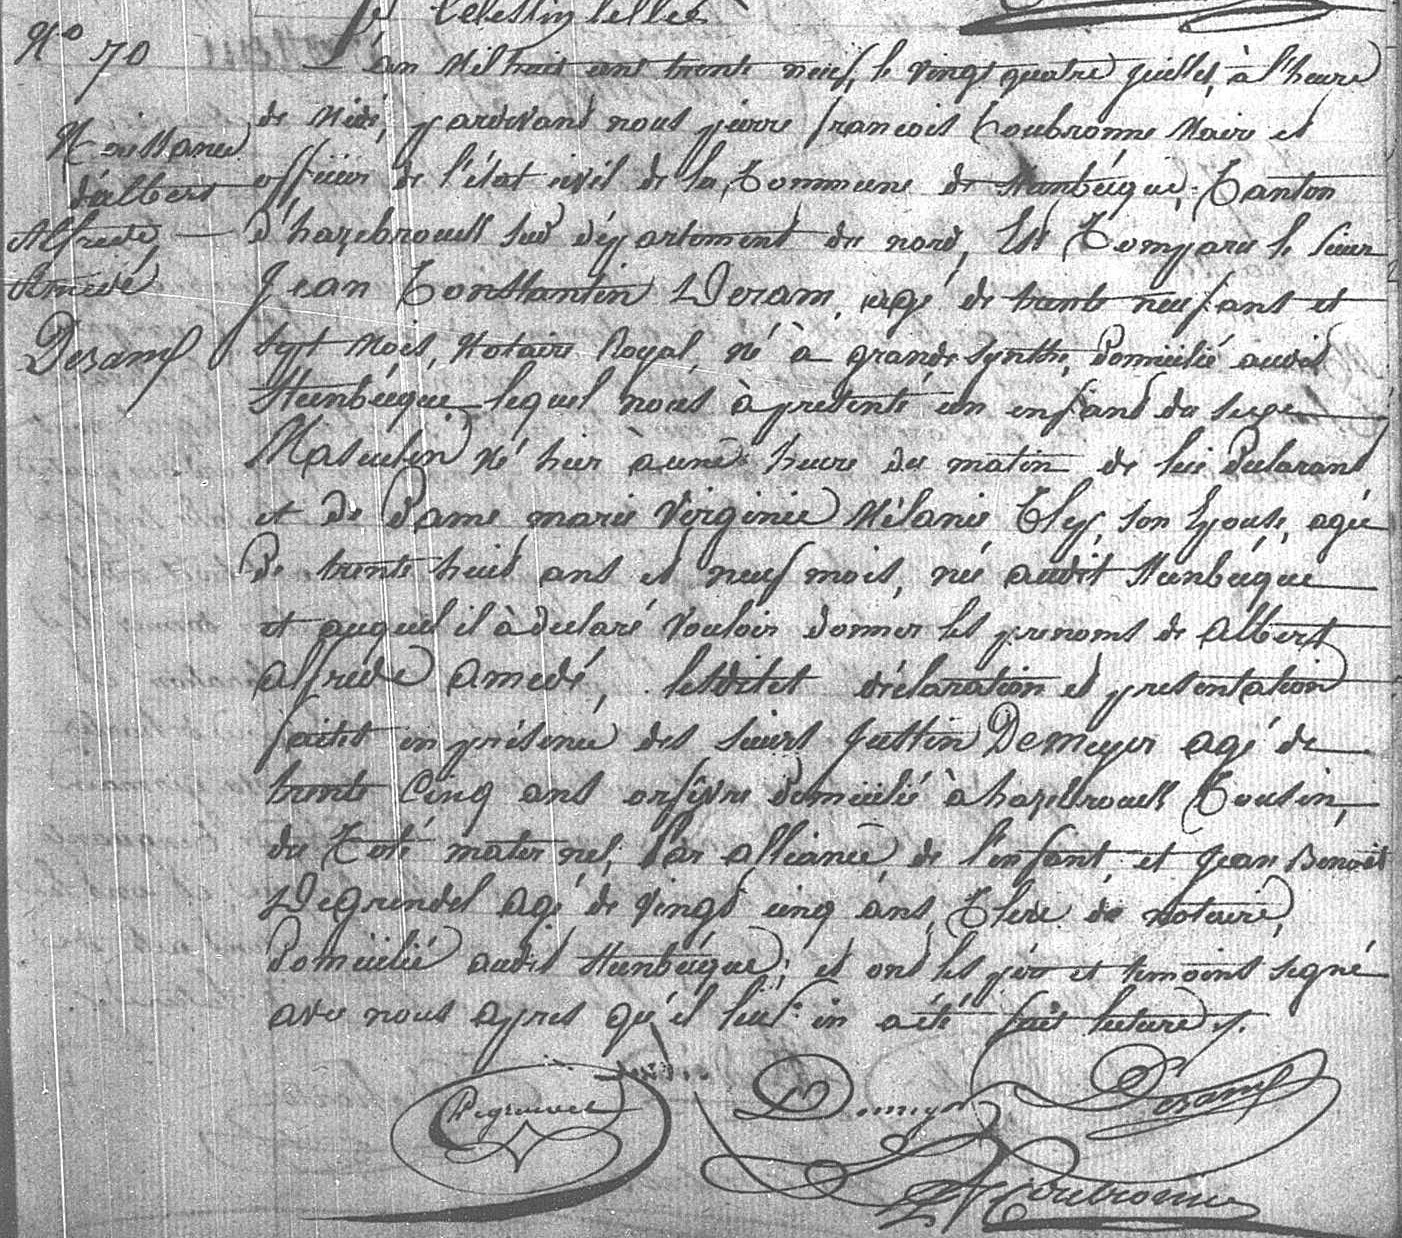 Célestin Sellié
N° 70
Naissance
d'albert
Alfrede,
Amédé
Deram
L'an Mil huit cent trente neuf, le vingt quatre juillet, à l'heure
de Midi, pardevant nous pierre francois Coubronne Maire et
officier de l'état civil de la Commune de Steenbécque, Canton
d'hazebrouck sud département du nord, Est Comparu le sieur
Jean Constantin Deram, agé de trente neuf ans et
sept Mois, Notaire Royal, Né à grande Synthe, Domicilié audit
Steenbécque lequel nous à présenté un enfant du sexe
Masculin Né hier à une heure du matin de lui Déclarant
et de Dame marie Virginie Mélanie Cley, son Epouse, agée
De trente huit ans et neuf mois, née audit Steenbécque
et auquel il à déclaré vouloir donner les prenoms de Albert
alfrede amedé, lesdites déclaration et presentation
faites en présence des sieurs Justin Demeyer agé de
trente Cinq ans orfèvre domicilié à hazebrouck Cousin,
du Coté maternel, Par alliance de l'enfant, et Jean Benoit
Degrendel agé de vingt cinq ans, Clerc de notaire,
Domicilié audit Steenbécque; et ont les père et témoins signé
avec nous apres qu'il leur en a été fait lecture.
Degrendel Demeyer Deram
Coubronne